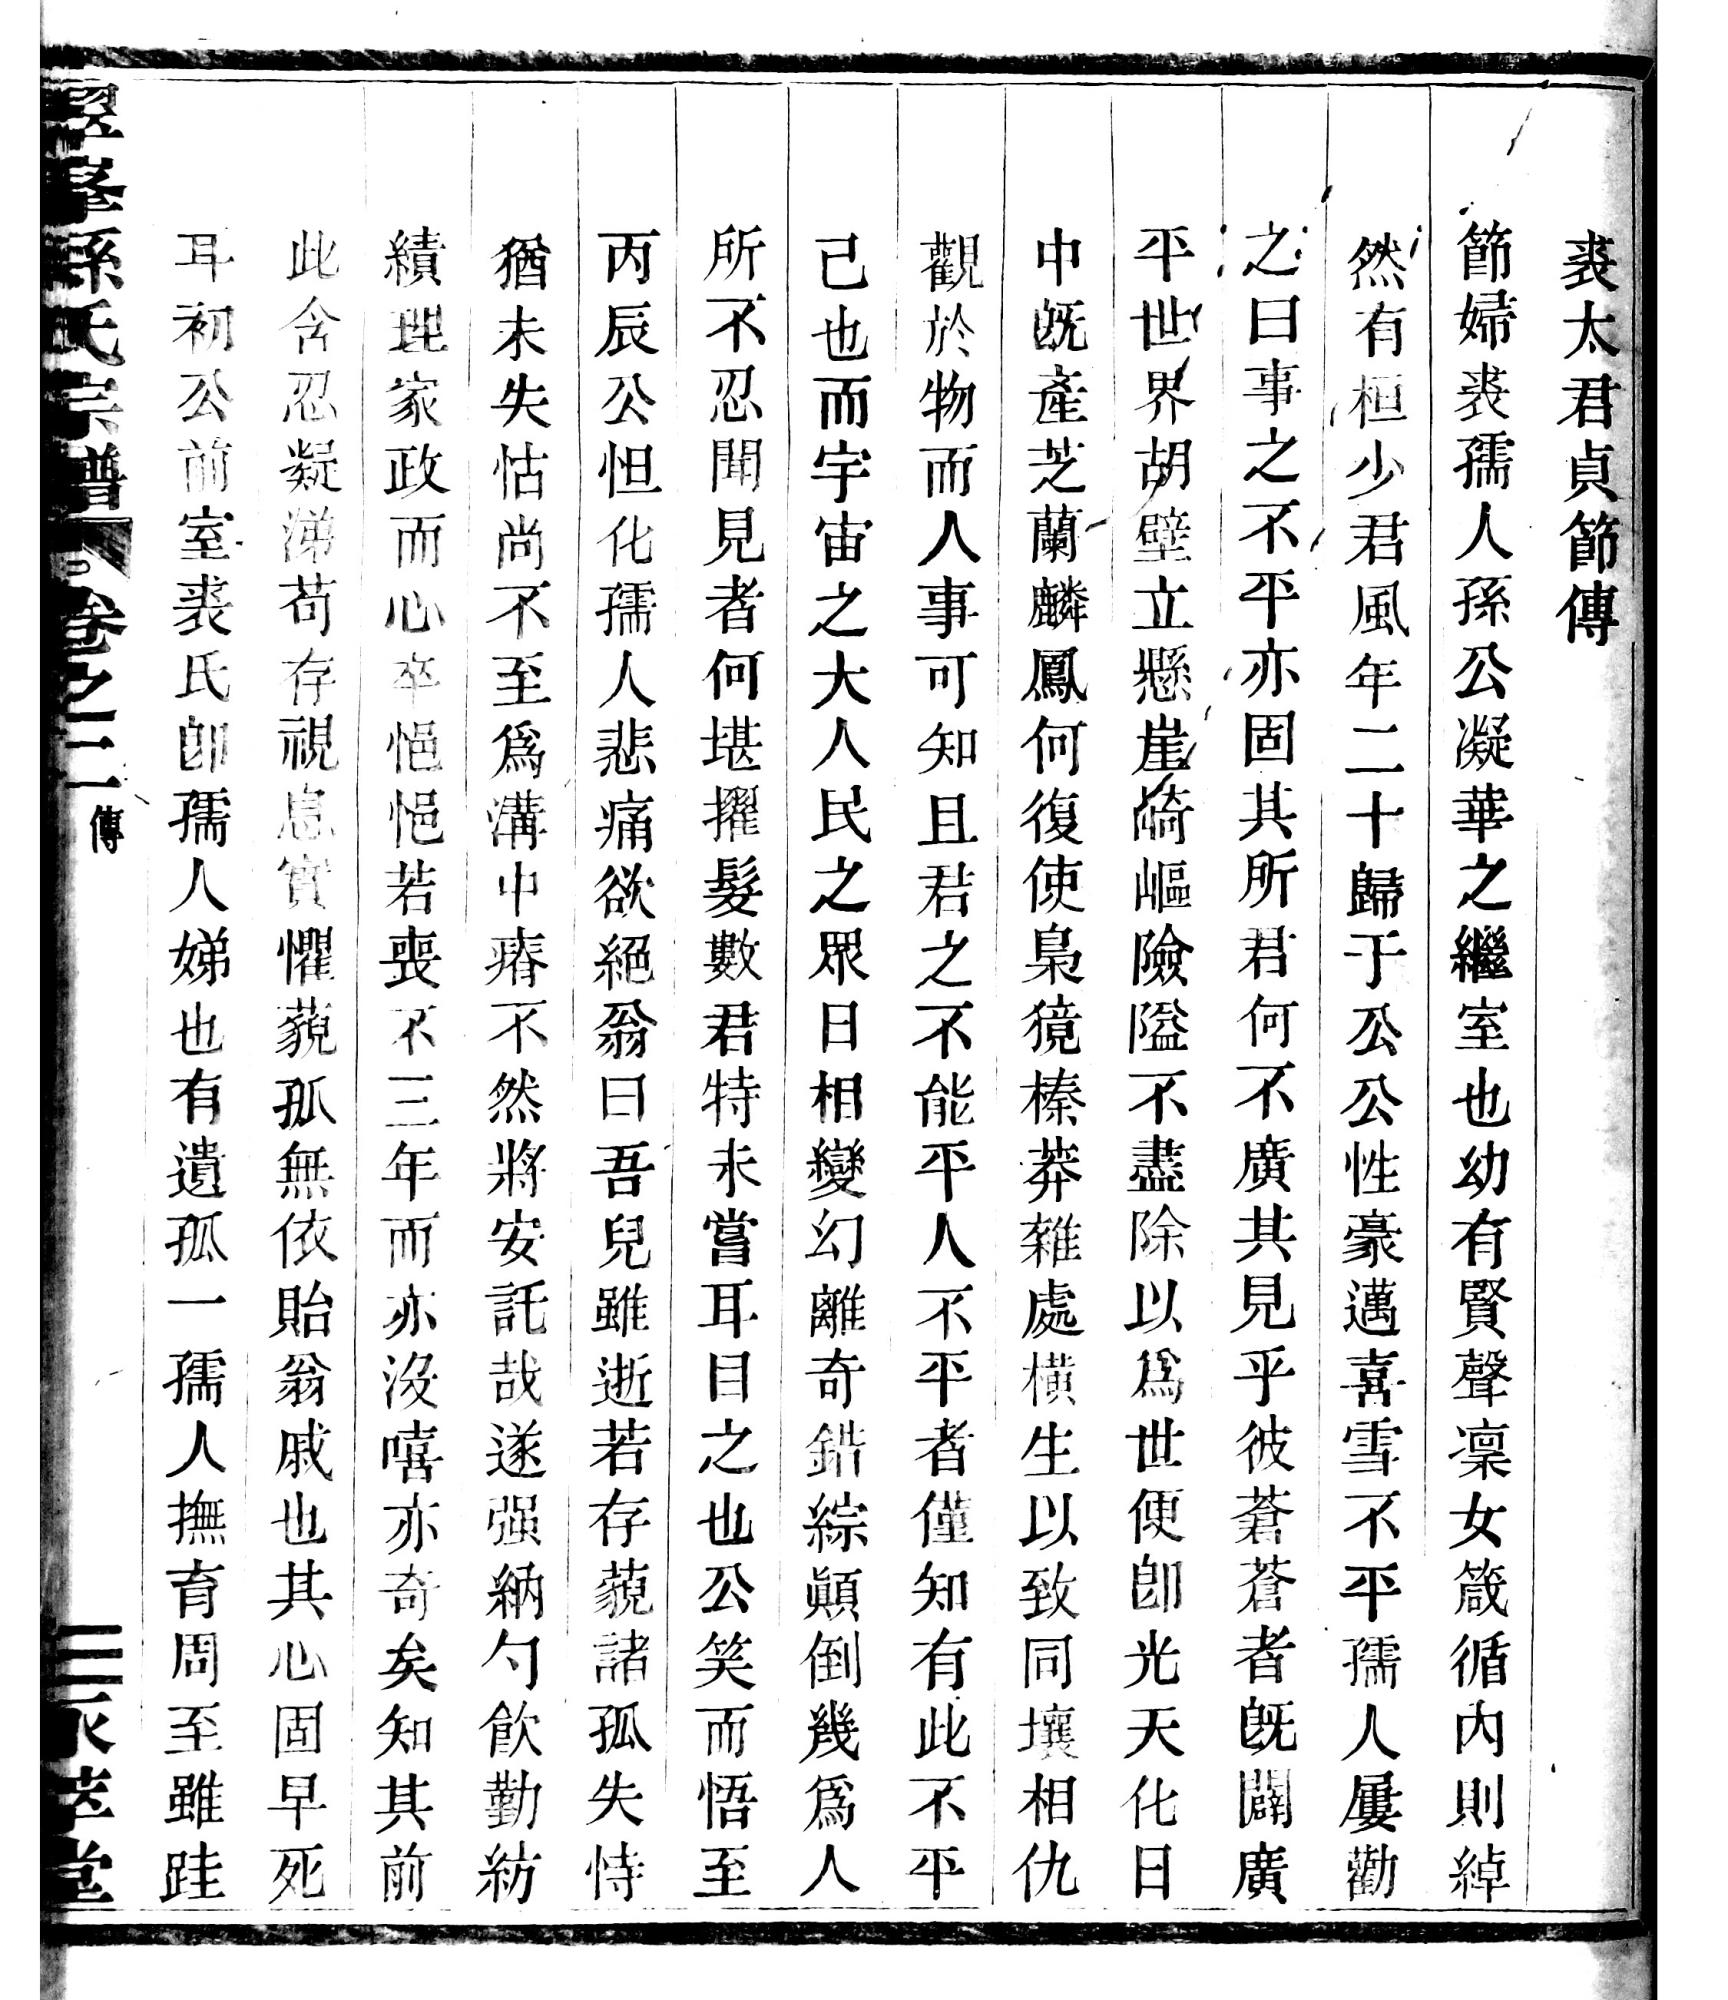 裘太君貞節傳
節婦裘孺人孫公凝華之繼室也幼有賢聲凜女箴循內則綽
然有桓少君風年二十歸于公公性豪邁喜雪不平孺人屢勸
之曰事之不平亦固其所君何不廣其見乎彼蒼蒼者既闢廣
平世界胡壁立懸崖崎嶇險隘不盡除以為世便卽光天化日
中既產芝蘭麟鳳何復使梟獍榛莽雜處橫生以致同壤相仇
觀於物而人事可知且君之不能平人不平者僅知有此不平
己也而宇宙之大人民之眾日相變幻離奇錯綜顚倒幾為人
所不忍聞見者何堪擢髮數君特未嘗耳目之也公笑而悟至
丙辰公怛化孺人悲痛欲絕翁曰吾兒雖逝若存藐諸孤失恃
猶未失怙尚不至為溝中瘠不然將安託哉遂强納勺飮勤紡
績理家政而心卒悒悒若喪不三年而亦沒嘻亦奇矣知其前
此含忍凝涕苟存視息實懼藐孤無依貽翁戚也其心固早死
耳初公前室裘氏卽孺人娣也有遺孤一孺人撫育周至雖跬
峯孫氏宗譜 卷之二 傳 三 永萃堂